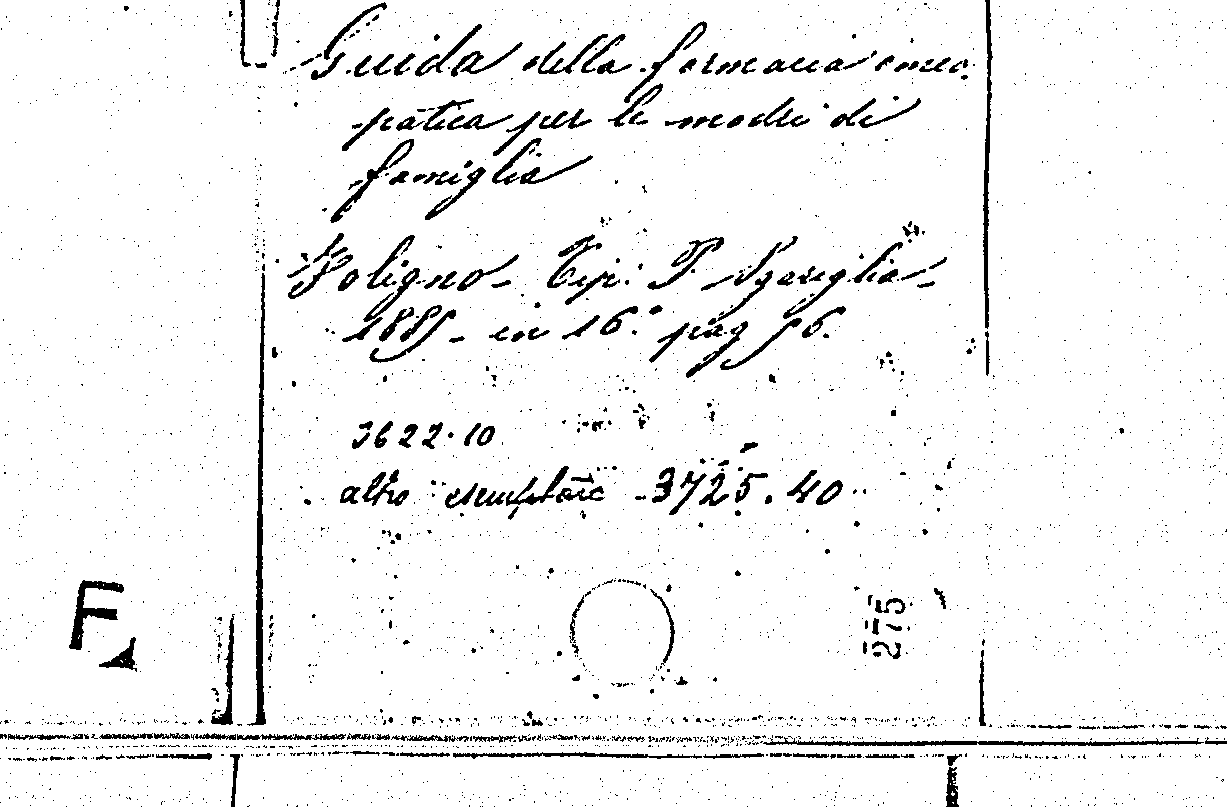 Guida della farmacia omeo-
patica per le madri di
famiglia
Foligno - Tip. P. Sgariglia -
1885 - in 16.° pag 56.
3622.10
altro esemplare 3725.40
F
275